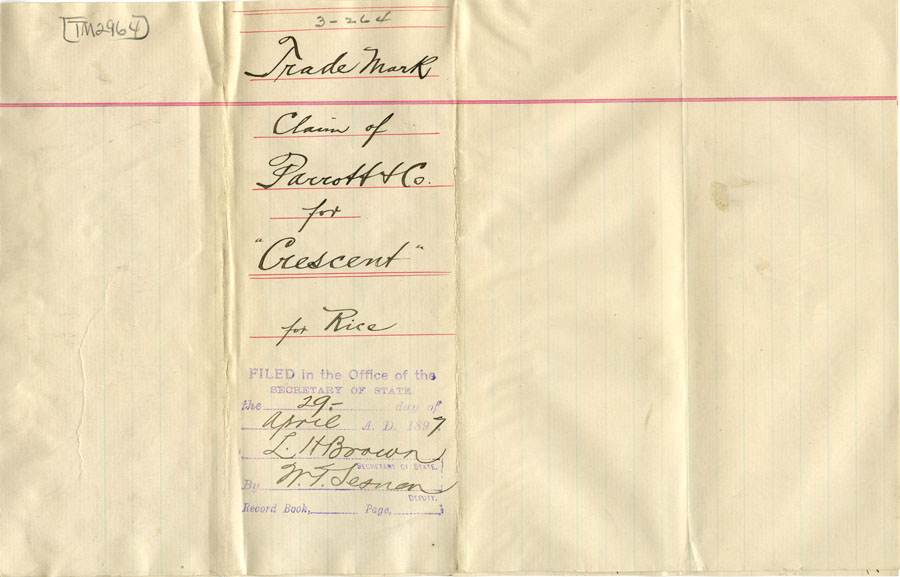 TM2964
3-264
Trade Mark
Claim of
Parrott & Co.
for
"Crescent"
for Rice
FILED in the Office of the
SECRETARY OF STATE
the 29.- day of
April A. D. 1897
L. H Brown
SECRETARY OF STATE.
By W. T. Sesnon
DEPUTY.
Record Book, Page,